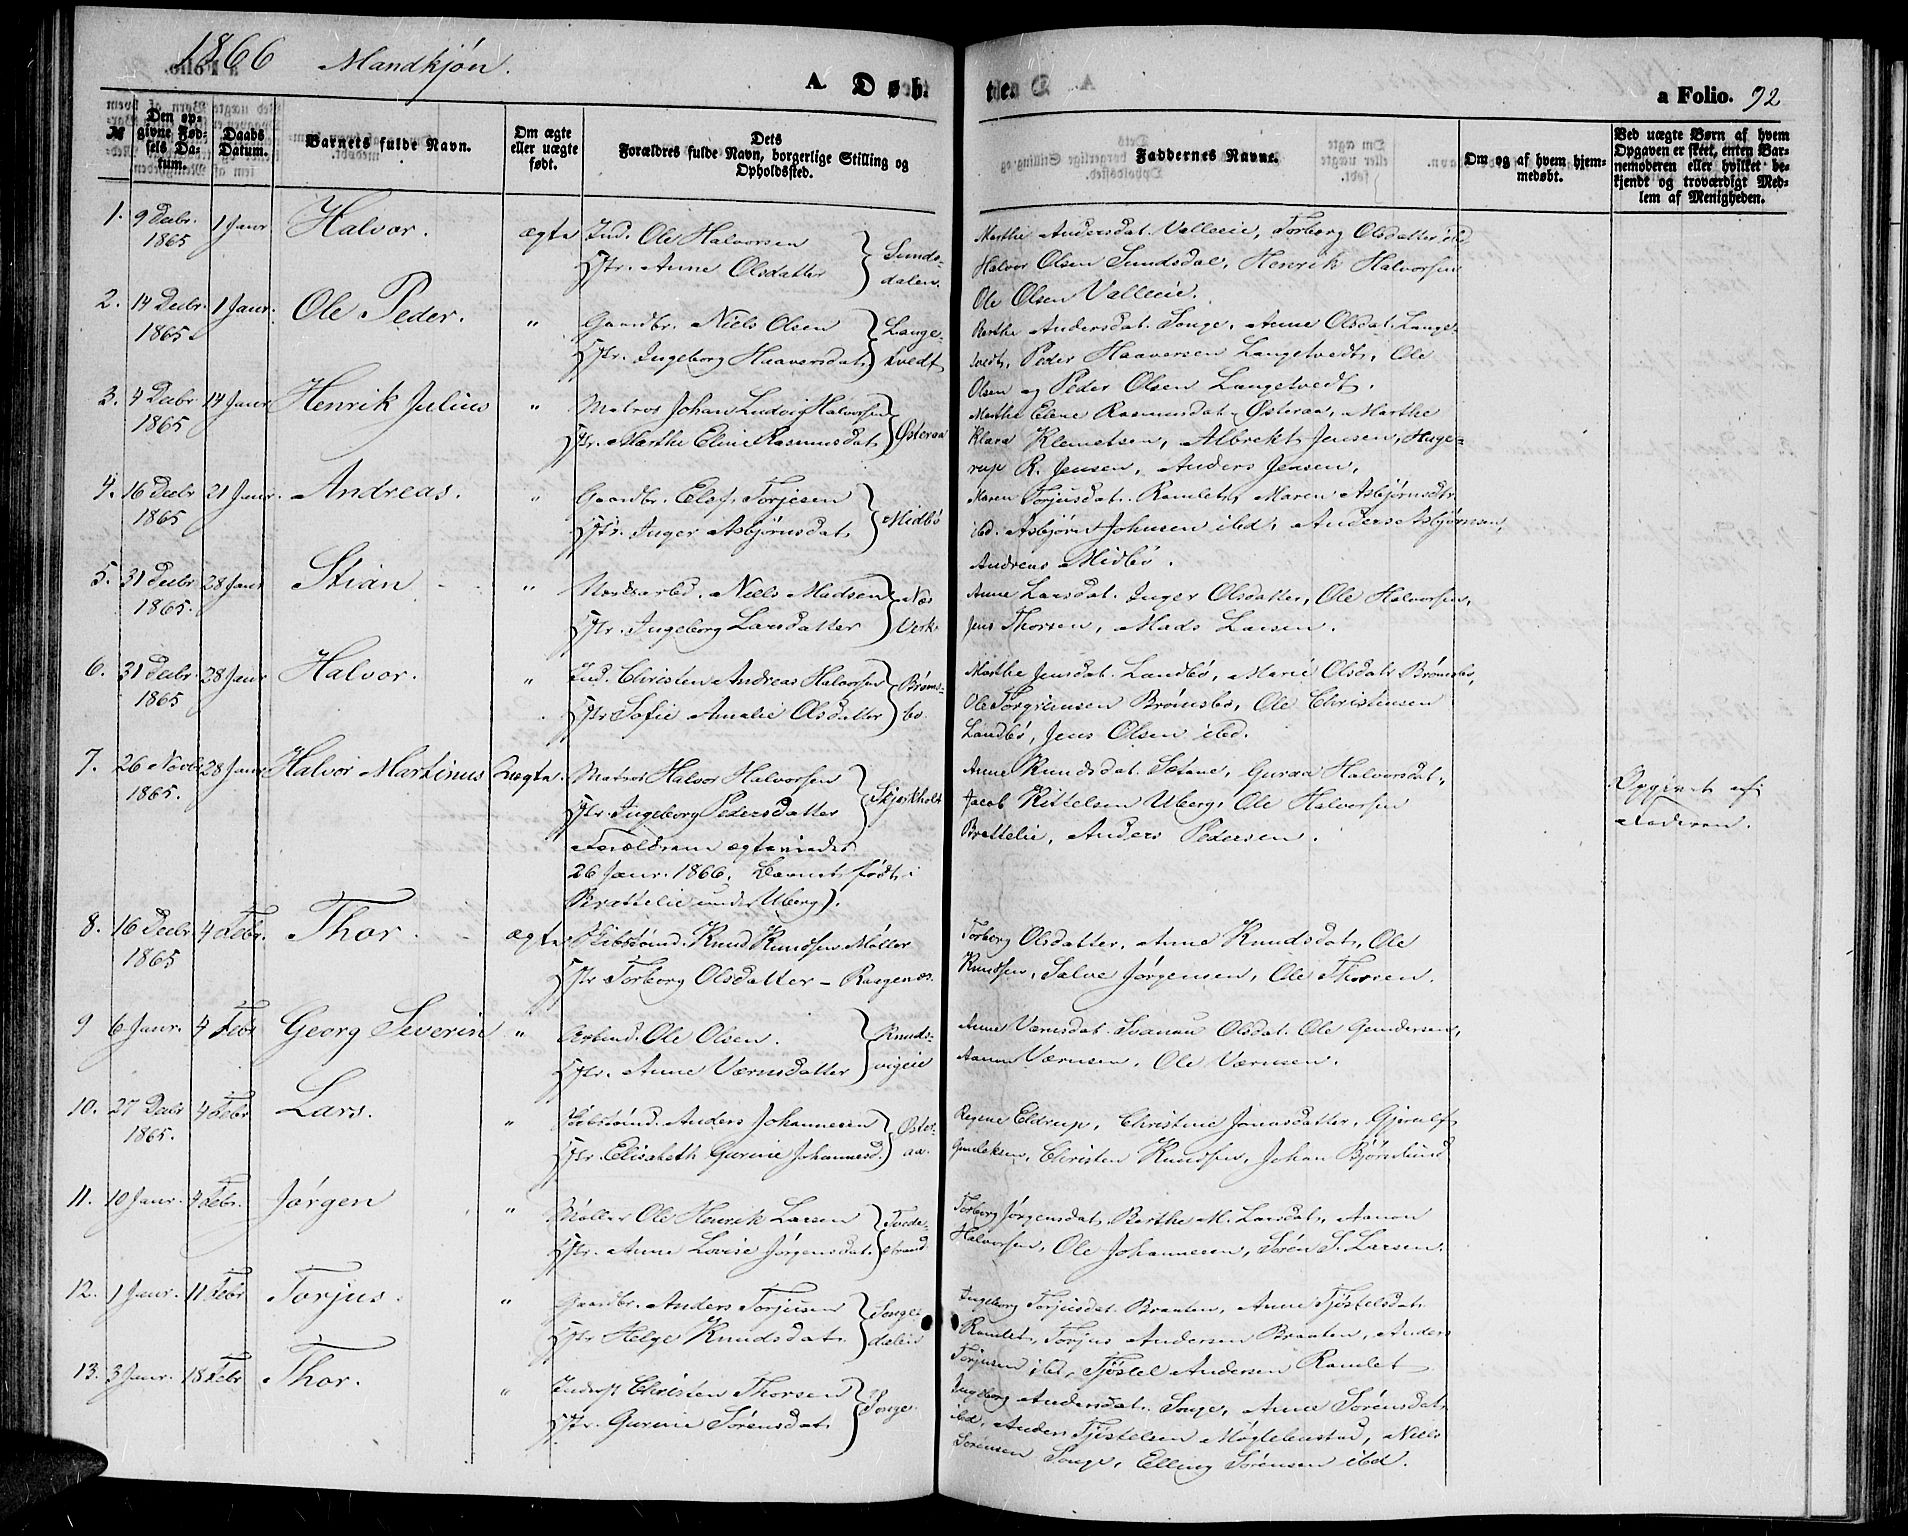 1866 Mandkjøn.
A. Døb-
te.
a Folio. 92
№
Den op-
givne Fød-
sels Da-
tum.
Daabs
Datum.
Barnets fulde Navn.
Om ægte
eller uægte
født.
Dets
Forældres fulde Navn, borgerlige Stilling og
Opholdssted.
Faddernes Navne.
Om og af hvem hjem-
medøbt.
Ved uægte Børn af hvem
Opgaven er skeet, enten Bar-
nemoderen eller hvilket be-
kjendt og troværdigt Med-
lem af Menigheden.
1. 9 Decbr. 1865 1 Janr Halvor. ægte Ind. Ole Halvorsen
Hstr. Anne Olsdatter } Sunds-
dalen.
Marthe Andersdat. Valleeie, Torborg Olsdatter ibd
Halvor Olsen Sundsdal, Henrik Halvorsen
Ole Olsen Valleeie.
2. 14 Decbr. 1865. 1 Janr. Ole Peder. " Gaardbr. Niels Olsen
Hstr. Ingeborg Haaversdat. } Lange-
tvedt
Berthe Andersdat. Songe, Anne Olsdat. Lange-
tvedt, Peder Haaversen Langetvedt, Ole
Olsen og Peder Olsen Langetvedt.
3. 4 Decbr 1865 14 Janr Henrik Julius " Matros Johan Ludvig Halvorsen
Hstr. Marthe Eline Rasmusdat. } Østeraa
Marthe Elene Rasmusdat. Østeraa, Marthe
Klara Klemetsen, Albrekt Jensen, Huge-
rup R. Jensen, Anders Jensen.
4. 16 Decbr 1865 21 Janr. Andreas. " Gaardbr. Elef Torjesen
Hstr. Inger Asbjørnsdat. } Midbø
Maren Torjusdat. Ramlet, Maren Asbjørnsdtr
ibd. Asbjørn Johnsen ibd, Anders Asbjørnsen,
Andreas Midbø.
5. 31 Decbr 1865. 28 Janr Stian " Verksarbd. Niels Madsen
Hstr. Ingeborg Larsdatter } Næs
Verk.
Anne Larsdat. Inger Olsdatter, Ole Halvorsen,
Jens Thorsen, Mads Larsen.
6. 31 Decbr 1865 28 Janr Halvor. " Ind. Christen Andreas Halvorsen
Hstr Sofie Amalie Olsdatter } Brøms-
bo.
Marthe Jensdat. Landbø, Marie Olsdat. Brømsbo,
Ole Torgrimsen Brømsbo, Ole Christensen
Landbø, Jens Olsen ibd.
7. 26 Novbr 1865. 28 Janr Halvor Martinus Uægte. Matros Halvor Halvorsen
Hstr. Ingeborg Pedersdatter } Skjerkholt
Forældrene ægteviede
26 Janr. 1866. Barnet født i
Brattelie under Uberg).
Anne Knudsdat. Sætane, Guraa Halvorsdat.,
Jacob Kittelsen Uberg, Ole Halvorsen
Brattelie, Anders Pedersen.
Opgivet af
Faderen.
8. 16 Decbr 1865 4 Febr. Thor. ægte Skibstømd. Knud Knudsen Møller
Hstr Torborg Olsdatter – Raagenæs.
Torborg Olsdatter, Anne Knudsdat., Ole
Knudsen, Salve Jørgensen, Ole Thorsen.
9 6 Janr. 4 Febr Georg Severin " Arbmd. Ole Olsen.
Hstr. Anne Værnsdatter } Knuds-
vigeie
Anne Værnsdat. Svanau Olsdat. Ole Gundersen,
Aanon Værnsen, Ole Værnsen.
10. 27 Decbr 1865. 4 Febr Lars. " Skibstømd. Anders Johannesen
Hstr Elisabeth Gurine Johannesd. } Øster-
aa.
Regene Eldrup, Christine Jonasdatter, Gjerulf
Gunleksen, Christen Knudsen, Johan Bjørnlund
11. 10 Janr. 4 Febr. Jørgen " Møller Ole Henrik Larsen
Hstr. Anne Lovise Jørgensdat. } Tvede-
strand
Torborg Jørgensdat. Berthe M. Larsdat., Aanon
Halvorsen, Ole Johannesen, Søren S. Larsen.
12. 1 Janr. 11 Febr Torjus. " Gaardbr. Anders Torjusen
Hstr Helge Knudsdat. } Songe-
dalen
Ingeborg Torjusdat. Braaten, Anne Tjøstelsdat.
Ramlet, Torjus Andersen Braaten, Anders
Torjusen ibd, Tjøstel Andersen Ramlet
13. 3 Janr. 18 Febr Thor. " Inderst Christen Thorsen
Hstr. Gurine Sørensdat. } Songe.
Ingeborg Andersdat. Songe, Anne Sørensdat.
ibd, Anders Tjøstelsen Møglebustad, Niels
Sørensen Songe, Elling Sørensen ibd.